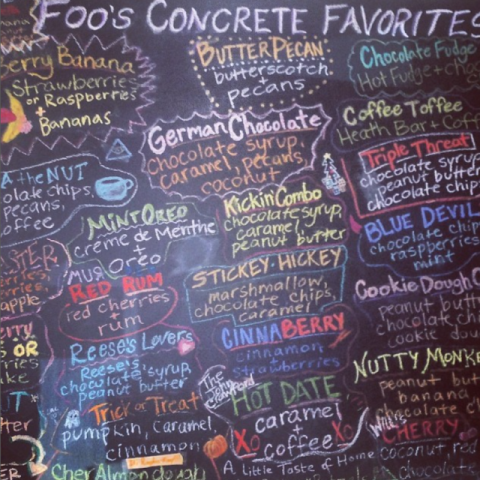 FOO'S CONCRETE FAVORITES
Berry Banana
Strawberries
or Raspberries
+
Bananas
BUTTER PECAN
butterscotch
+
pecans
Chocolate Fudge
Hot Fudge +
Coffee Toffee
Heath Bar +
German Chocolate
Chocolate syrup,
caramel, pecans,
coconut
Triple Threat
chocolate syrup
peanut butter
chocolate chip
NUT
chips
pecans,
MINT OREO
crème de Menthe
+
Oreo
Kickin' Combo
chocolate syrup,
caramel,
peanut butter
BLUE DEVIL
chocolate chip
raspberries
mint
RED RUM
red cherries
+
rum
STICKEY-HICKEY
marshmallow,
chocolate chips,
caramel
Cookie Dough
peanut butt
chocolate chi
cookie dou
Reese's Lovers
Reese's,
chocolate syrup,
peanut butter
CINNABERRY
cinnamon
strawberries
OR
NUTTY MONKE
peanut but
banana
chocolate c
Trick or Treat
pumpkin, caramel,
cinnamon
The
HOT DATE
XO caramel XO
+
coffee
CHERRY
coconut, red
chocolate
A Little Taste of Home
Cher Almondough